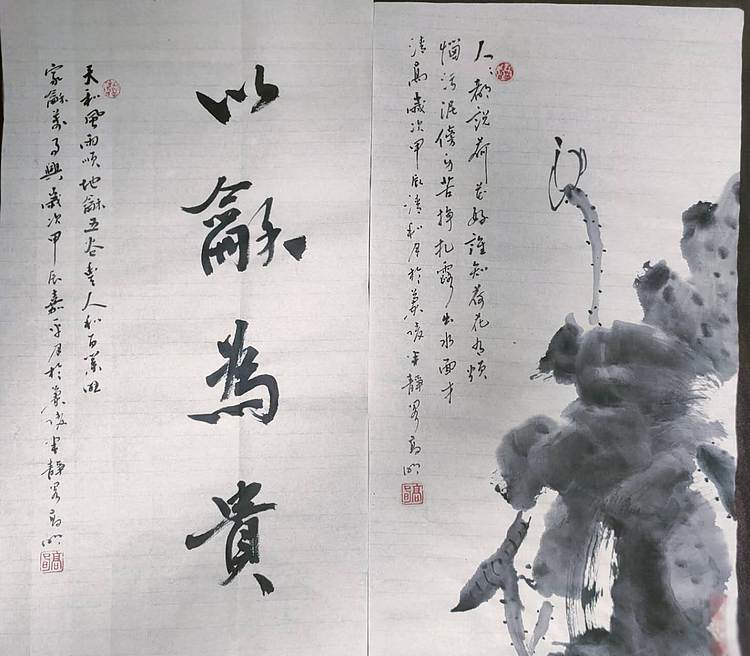 人:都説荷花好誰知荷花有煩
惱污泥傍身苦掙扎露出水面才
清高歲次甲辰清和月於蘭陵半靜翁高明
以龢為貴
天和風雨順地龢五谷豐人和百業旺
家龢萬事興歲次甲辰嘉平月於蘭陵半靜翁高明